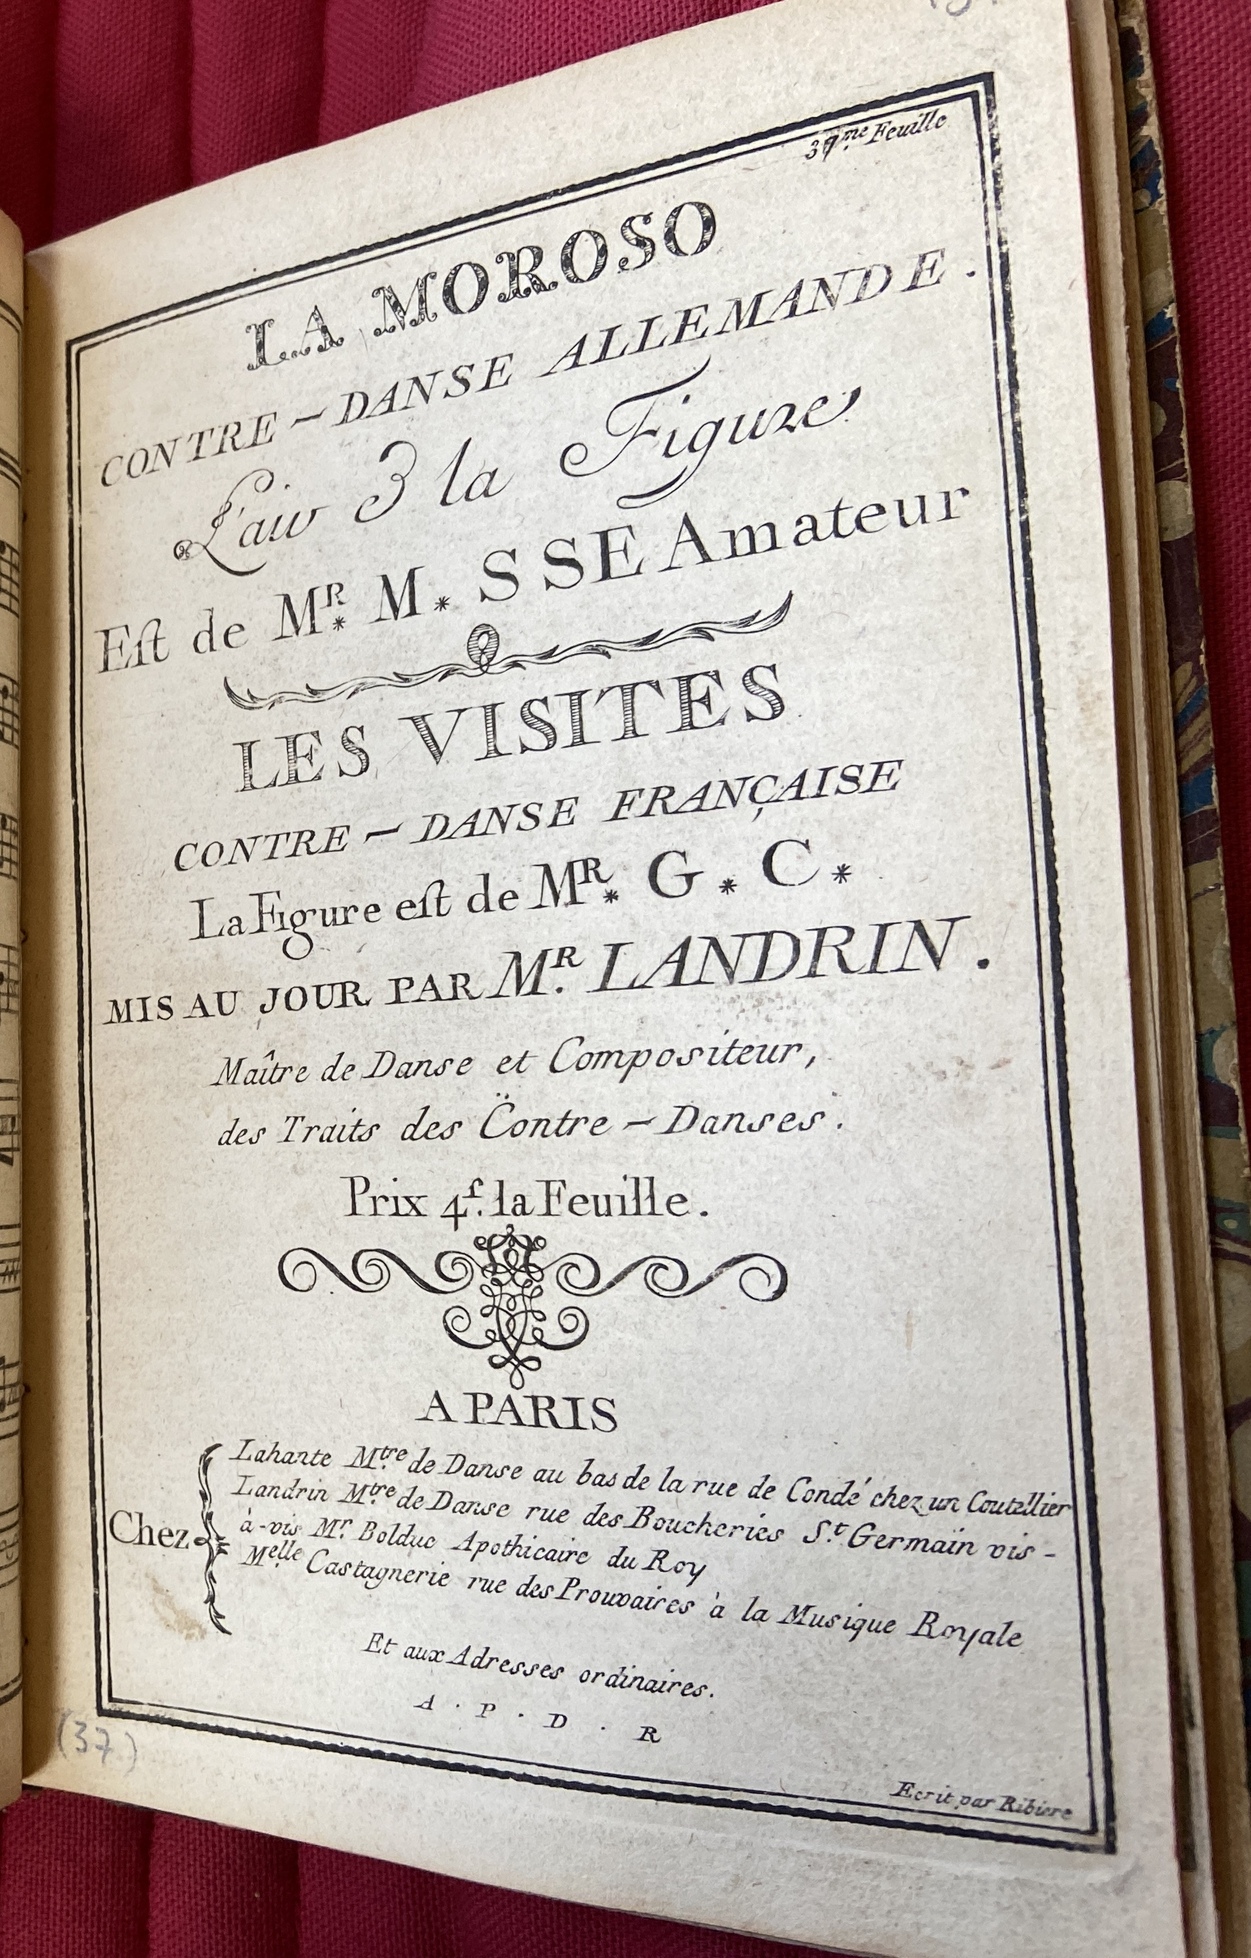 39me. Feuille
LA MOROSO
CONTRE - DANSE ALLEMANDE.
L'air & la Figure
Est de MR. M. SSE Amateur
LES VISITES
CONTRE - DANSE FRANÇAISE
La Figure est de MR. G. C.
MIS AU JOUR PAR MR. LANDRIN.
Maître de Danse et Compositeur,
des Traits des Contre - Danses.
Prix 4f. la Feuille.
A PARIS
Chez
Lahante Mtre. de Danse au bas de la rue de Condé chez un Coutellier
Landrin Mtre. de Danse rue des Boucheries St. Germain vis-
à-vis Mr. Bolduc Apothicaire du Roy
Melle. Castagnerie rue des Prouvaires à la Musique Royale
Et aux Adresses ordinaires.
A . P . D . R
Ecrit par Ribiere
(37)